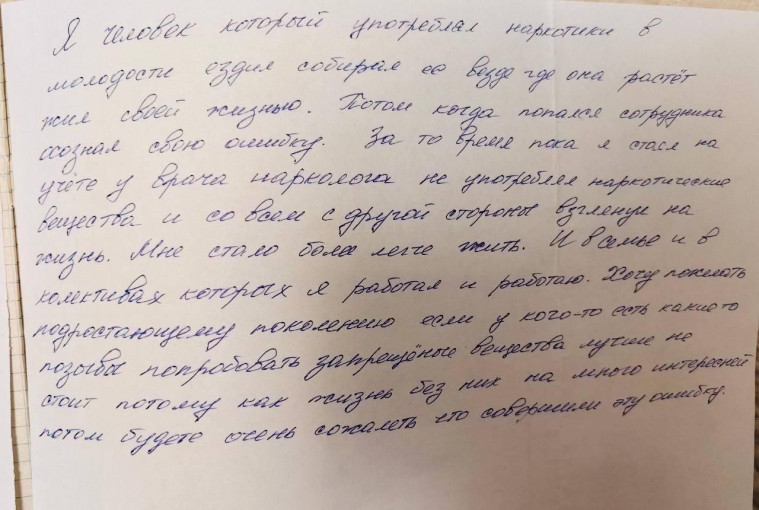 Я человек который употреблял наркотики в
молодости ездил собирал ее везде где она растёт
жил своей жизнью. Потом когда попался сотрудника
осознал свою ошибку. За то время пока я стаял на
учёте у врача нарколога не употреблял наркотические
вещества и со всем с другой стороны взгленул на
жизнь. Мне стало более легче жить. И в семье и в
колективах которых я работал и работаю. Хочу пожелать
подростающему поколению если у кого-то есть какие то
позывы попробовать запрещёные вещества лучше не
стоит потому как жизнь без них на много интересней
потом будете очень сожалеть что совершили эту ошибку.